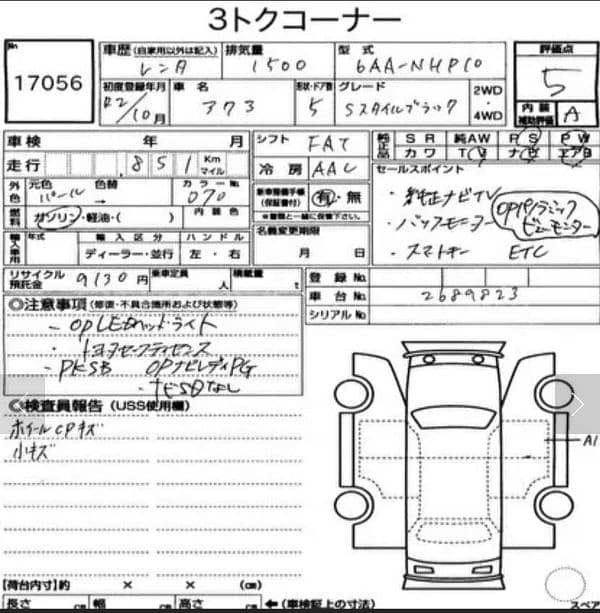 3トクコーナー
No 17056
車歴 (自家用以外は記入) レンタ
排気量 1500
型式 6AA-NHP10
評価点 5
初度登録年月 R2/10月
車名 アクア
形状・ドア数 5
グレード Sスタイルブラック
2WD・4WD
内装補助評価 A
車検 年 月
シフト FAT
純正品 SR 純AW PS PW
カワ TV ナビ エアB
走行 851 Km マイル
冷房 AAC
セールスポイント
外色 元色 パール 色替 → カラーNo. 070
新車整備手帳(保証書付) 有・無
※書類と一緒に保管下さい。
・純正ナビTV
OPパノラミックビューモニター
・バックモニター
・スマートキー ETC
燃料 ガソリン・軽油・( ) 内装色
名義変更期限 月 日
輸入車用 年式 輸入区分 ハンドル
ディーラー・並行 左・右
リサイクル預託金 9130円 乗車定員 人 積載量 t
登録No.
車台No. 2689823
シリアルNo.
◎注意事項 (修復・不具合箇所および状態等)
- OPLEDヘッドライト
・トヨタセーフティセンス
- PKSB OPナビレディPG
- ナビSDなし
◎検査員報告 (USS使用欄)
ホイールCPキズ
小キズ
A1
【荷台内寸】約 × × (cm)
長さ cm 幅 cm 高さ cm ← (車検証上の寸法)
スペア